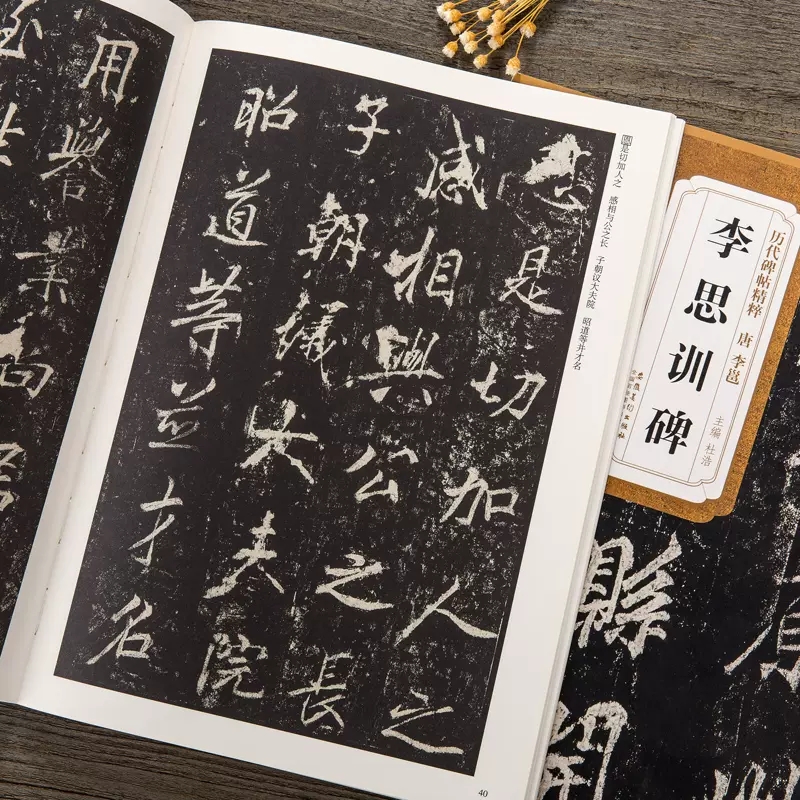 历代碑帖精粹 唐 李邕
李思训碑
主编 杜浩
安徽美术出版社
縣開
是切加人之 感相与公之长 子朝议大夫院 昭道等并才名
是切加人之
感相與公之長
子朝議大夫院
昭道等並才名
40
用譽業尚